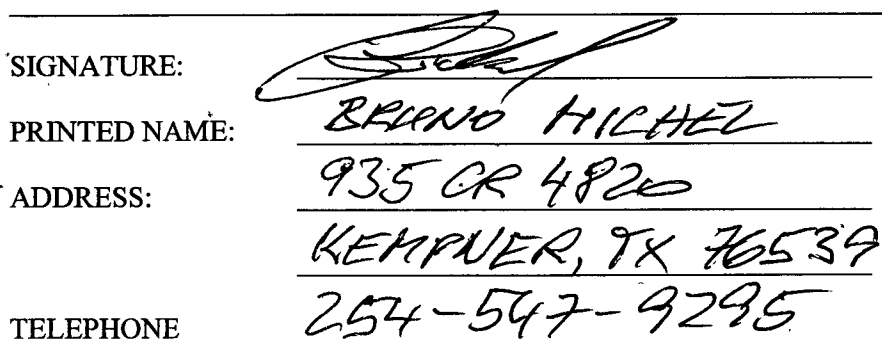 SIGNATURE:
PRINTED NAME: BRUNO MICHEL
ADDRESS: 935 CR 4820
KEMPNER, TX 76539
TELEPHONE 254-547-9295